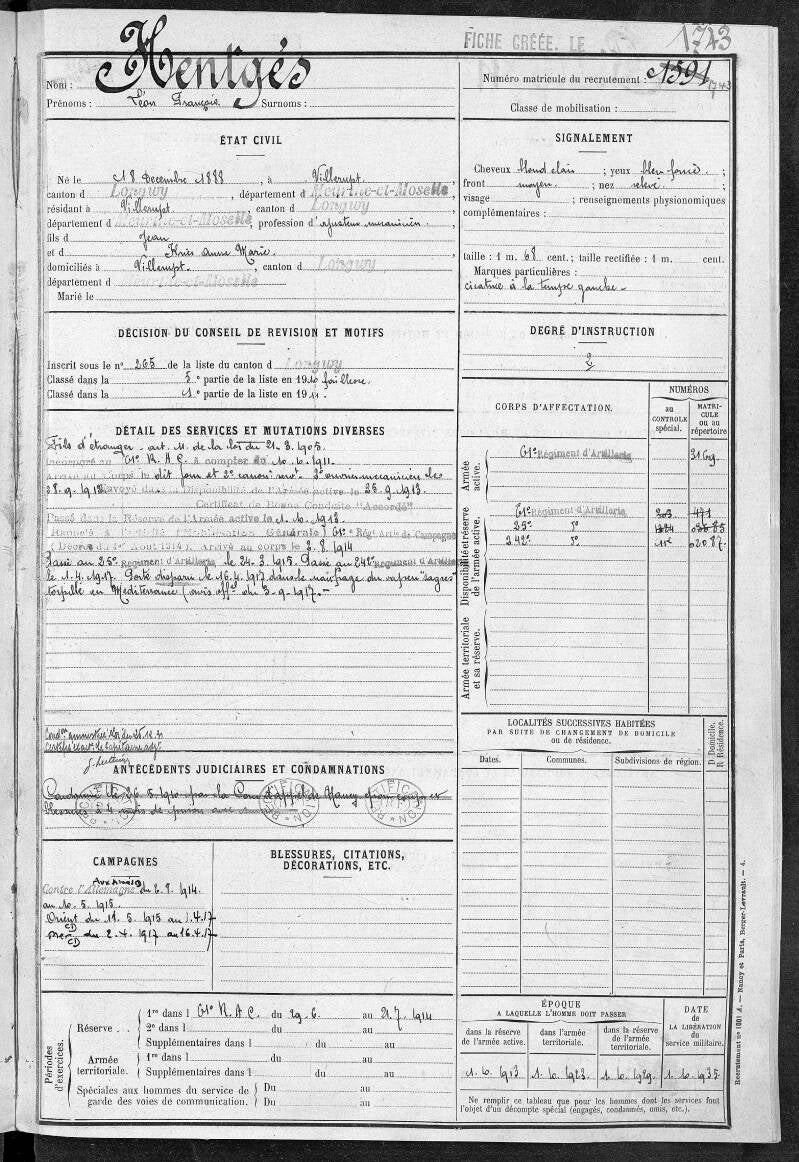 FICHE CRÉÉE. LE
1743
Nom : Hentgés
Prénoms : Léon François Surnoms :
Numéro matricule du recrutement : 1591
1743
Classe de mobilisation :
ÉTAT CIVIL
Né le 18 Decembre 1888, à Villerupt,
canton d Longwy, département d Meurthe-et-Moselle,
résidant à Villerupt, canton d Longwy,
département d Meurthe-et-Moselle, profession d'ajusteur mecanicien,
fils d Jean
et d Anne Marie
domiciliés à Villerupt, canton d Longwy,
département d Meurthe-et-Moselle
Marié le
SIGNALEMENT
Cheveux blond clair ; yeux bleu foncé ;
front moyen ; nez relevé ;
visage ; renseignements physionomiques
complémentaires :
taille : 1 m. 68 cent.; taille rectifiée : 1 m. cent.
Marques particulières :
cicatrice à la tempe gauche
DÉCISION DU CONSEIL DE REVISION ET MOTIFS
Inscrit sous le nº 265 de la liste du canton d Longwy
Classé dans la 5e partie de la liste en 1910 faiblesse.
Classé dans la 1e partie de la liste en 1911.
DEGRÉ D'INSTRUCTION
2
DÉTAIL DES SERVICES ET MUTATIONS DIVERSES
Fils d'étranger - art. 11 de la loi du 21.3.1905.
Incorporé au 61e R.A.C. à compter du 10.10.1911.
Arrivé au corps le dit jour et 2e canonr servt. 2e ouvrier mecanicien le
28.9.1912 Envoyé dans la Disponibilité de l'Armée active le 25.9.1913.
Certificat de Bonne Conduite "Accordé"
Passé dans la Réserve de l'Armée active le 1.10.1913.
Rappelé à Générale 61e Régt Artie de Campagne
(Décret du 1er Août 1914) Arrivé au corps le 2.8.1914
Passé au 25e Régiment d'Artillerie, le 24.3.1915. Passé au 242e Régiment d'Artillerie
le 1.4.1917. Porté disparu le 16.4.1917 dans le naufrage du vapeur "
torpillé en Mediterranée (avis offel du 3-9-1917.-
CORPS D'AFFECTATION.
NUMÉROS
au CONTROLE spécial.
MATRICULE ou au répertoire
Armée active.
61e Régiment d'Artillerie 3169.
Disponibilité et réserve de l'armée active.
61e Régiment d'Artillerie 203 471
25e do
242e do 02087.
Armée territoriale et sa réserve.
LOCALITÉS SUCCESSIVES HABITÉES
PAR SUITE DE CHANGEMENT DE DOMICILE
ou de résidence.
Dates. Communes. Subdivisions de région. D Domicile. R Résidence.
ANTÉCÉDENTS JUDICIAIRES ET CONDAMNATIONS
Condamné le 26.5.1910 par la Cour d'appel de Nancy pour coups et
blessures à 4 mois de prison avec
CAMPAGNES
Contre l'Allemagne
Aux armées du 2.8.1914.
au 10.5.1915.
Orient du 11.5.1915 au 1.4.17
CD
mer du 2.4.1917 au 16.4.17
CD
BLESSURES, CITATIONS,
DÉCORATIONS, ETC.
Périodes d'exercices.
Réserve . . 1re dans l 61e R.A.C. du 29.6. au 21.7.1914
2e dans l du au
Supplémentaires dans l du au
Armée territoriale. 1re dans l du au
Supplémentaires dans l du au
Spéciales aux hommes du service de
garde des voies de communication. Du au
Du au
ÉPOQUE
A LAQUELLE L'HOMME DOIT PASSER
dans la réserve de l'armée active. dans l'armée territoriale. dans la réserve de l'armée territoriale.
DATE
de
LA LIBÉRATION
du
service militaire.
1.10.1913 1.10.1923. 1.10.1929. 1.10.1935.
Ne remplir ce tableau que pour les hommes dont les services font
l'objet d'un décompte spécial (engagés, condamnés, omis, etc.).
Recrutement nº 1001 A. — Nancy et Paris, Berger-Levrault. — 4.